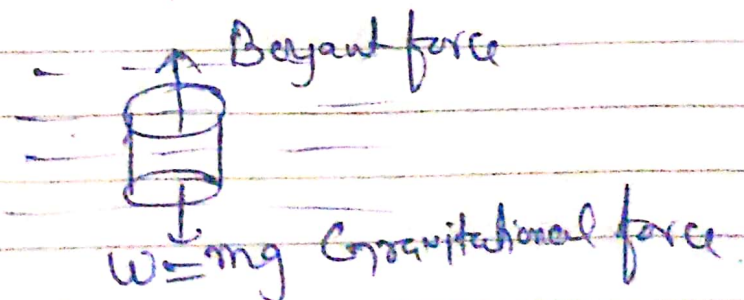 Boyant force
W=mg Gravitational force